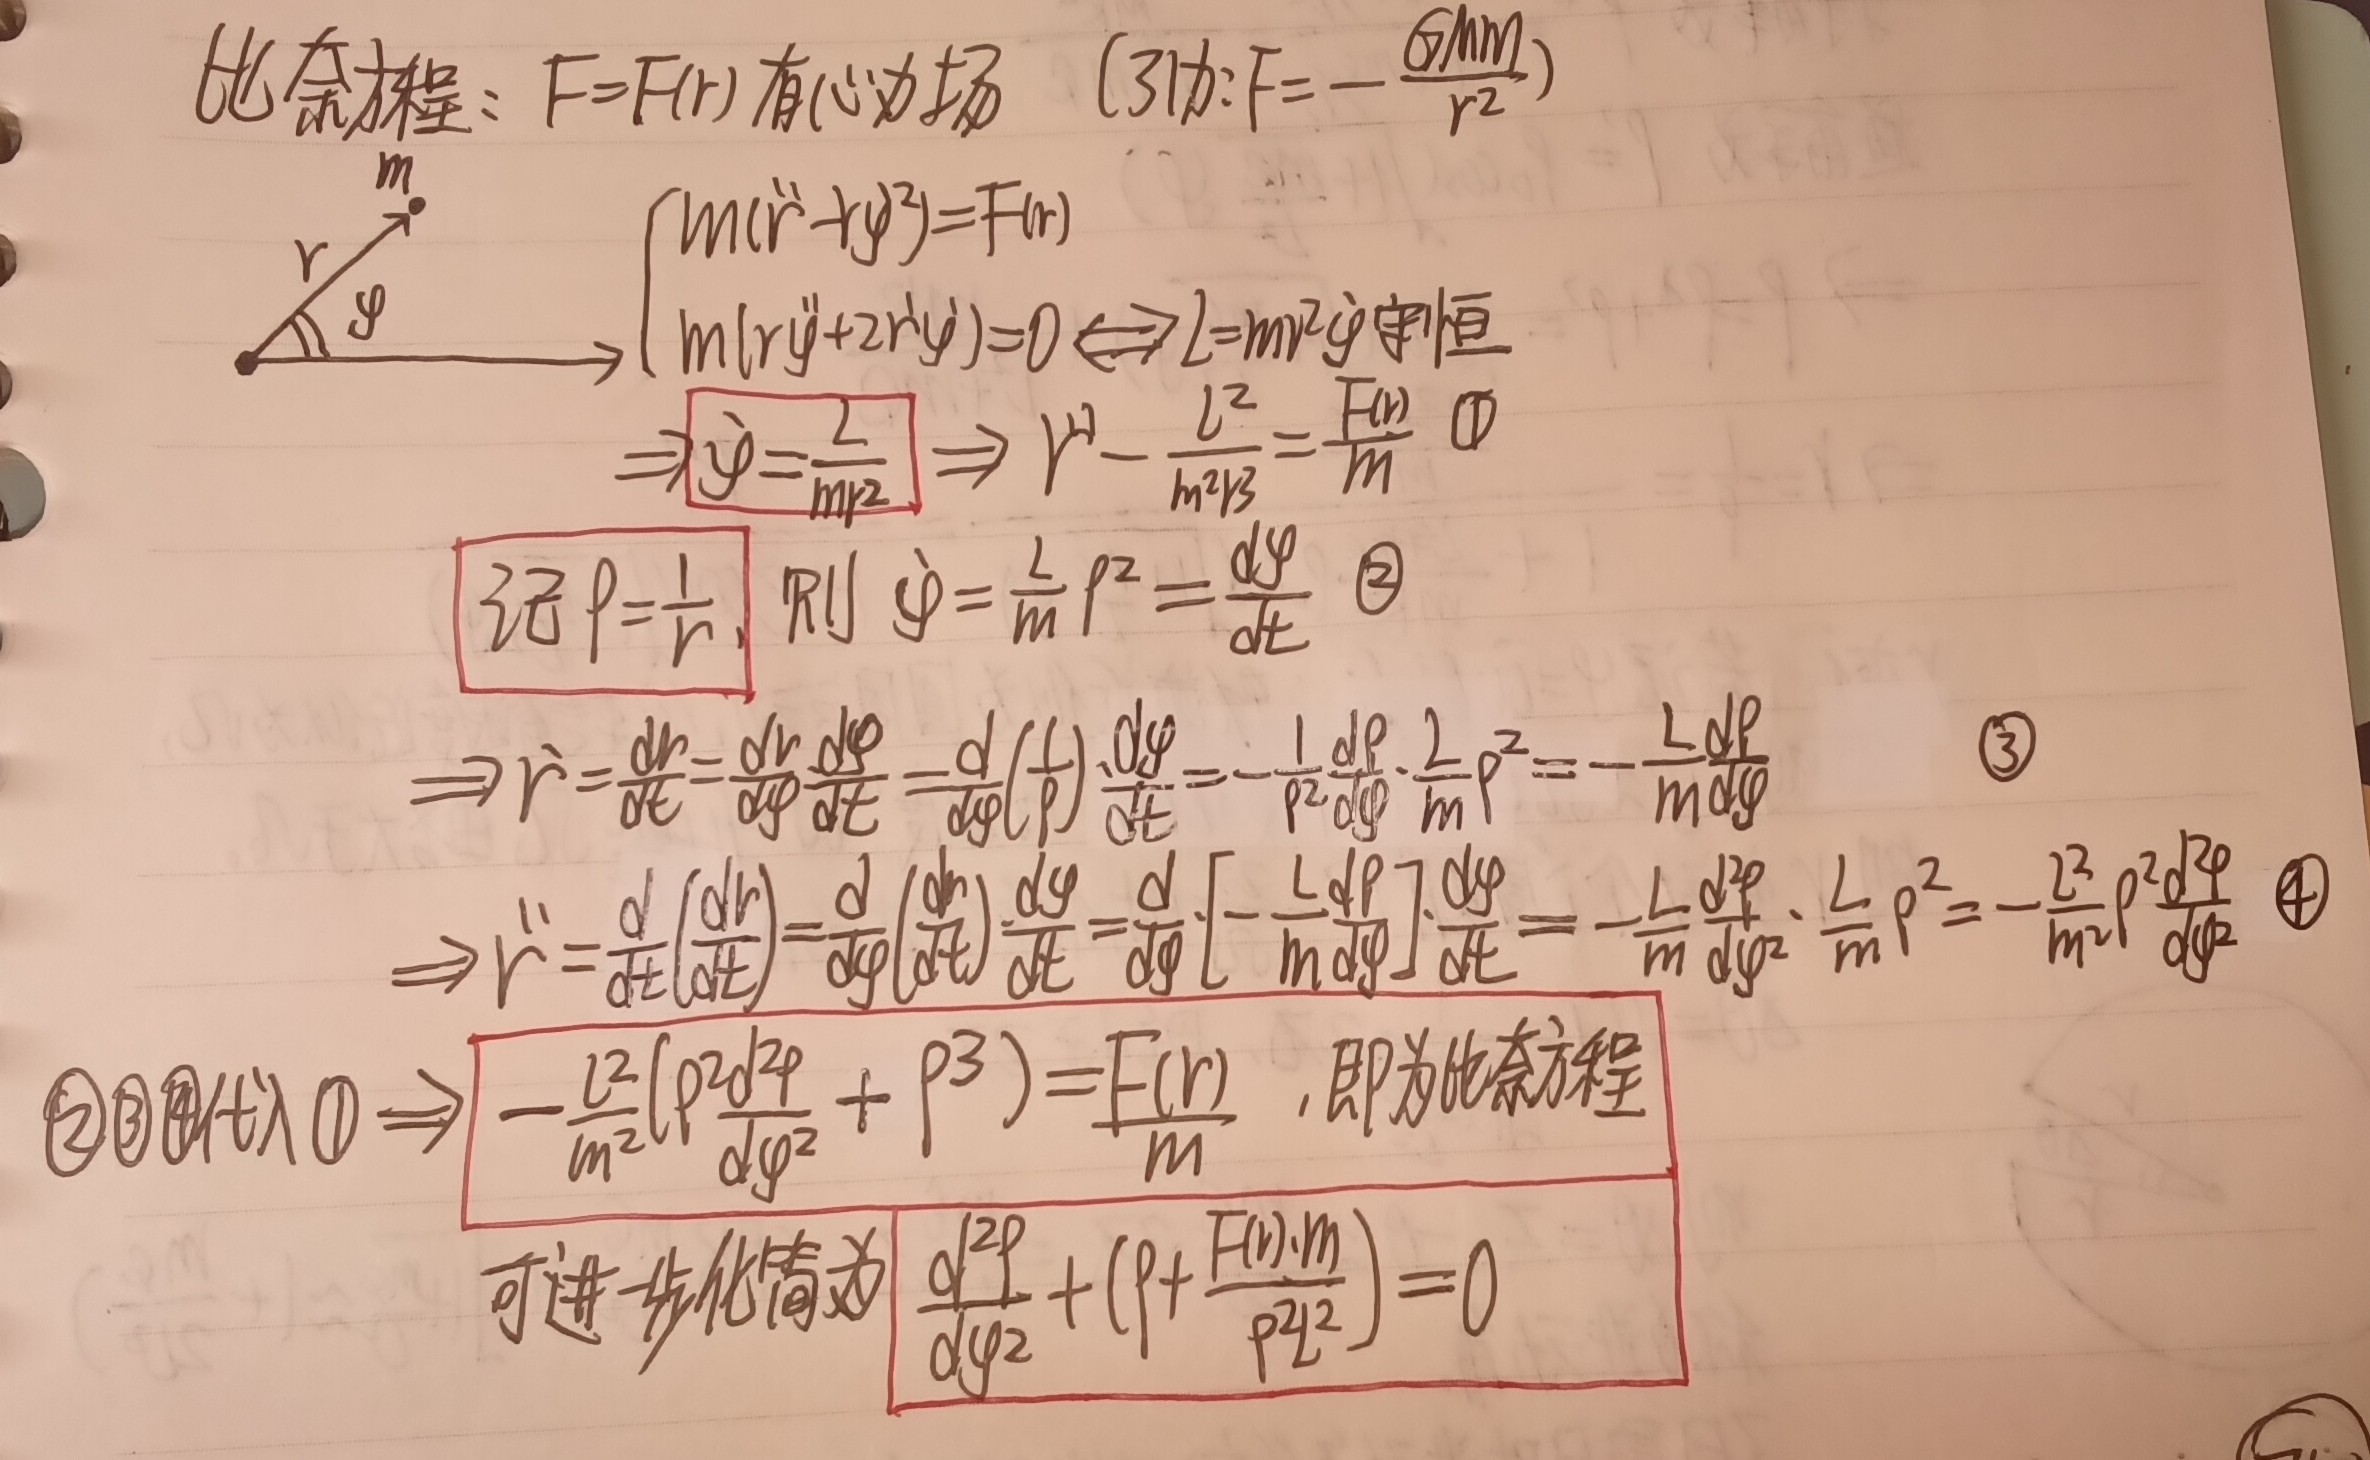 比奈方程：F=F(r) 有心力场 （引力：F=-\frac{GMm}{r^2}）
m
r
φ
m(r̈-rφ̇²)=F(r)
m(rφ̈+2ṙφ̇)=0 ⟺ L=mr²φ̇ 守恒
⇒ φ̇=\frac{L}{mr^2} ⇒ r̈-\frac{L^2}{m^2r^3}=\frac{F(r)}{m} ①
记 ρ=\frac{1}{r}，则 φ̇=\frac{L}{m}ρ²=\frac{dφ}{dt} ②
⇒ ṙ=\frac{dr}{dt}=\frac{dr}{dφ}\frac{dφ}{dt}=\frac{d}{dφ}(\frac{1}{ρ})·\frac{dφ}{dt}=-\frac{1}{ρ^2}\frac{dρ}{dφ}·\frac{L}{m}ρ²=-\frac{L}{m}\frac{dρ}{dφ} ③
⇒ r̈=\frac{d}{dt}(\frac{dr}{dt})=\frac{d}{dφ}(\frac{dr}{dt})·\frac{dφ}{dt}=\frac{d}{dφ}·[-\frac{L}{m}\frac{dρ}{dφ}]·\frac{dφ}{dt}=-\frac{L}{m}\frac{d^2ρ}{dφ^2}·\frac{L}{m}ρ²=-\frac{L^2}{m^2}ρ²\frac{d^2ρ}{dφ^2} ④
②③④代入① ⇒ -\frac{L^2}{m^2}(ρ²\frac{d^2ρ}{dφ^2}+ρ³)=\frac{F(r)}{m}，即为比奈方程
可进一步化简为 \frac{d^2ρ}{dφ^2}+(ρ+\frac{F(r)·m}{ρ^2L^2})=0